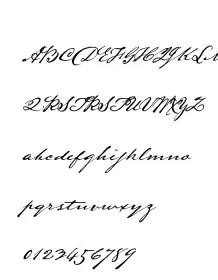 ABCDEFGHIJKLM
QRSTRSTUVWXYZ
abcdefghijklmno
pqrstuvwxyz
0123456789